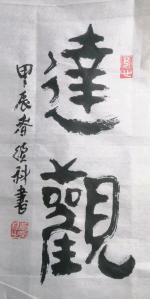 達觀
甲辰春德科書